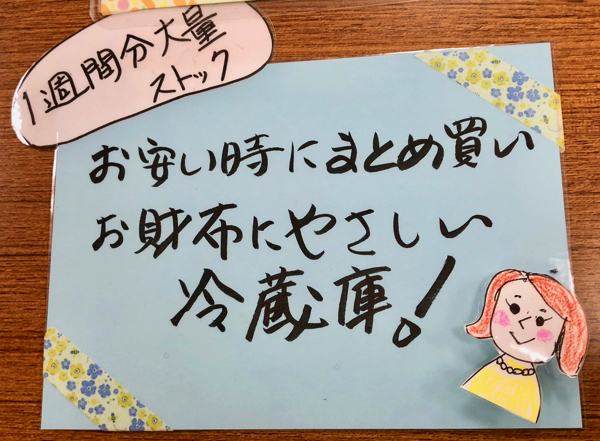 1週間分大量
ストック
お安い時にまとめ買い
お財布にやさしい
冷蔵庫！